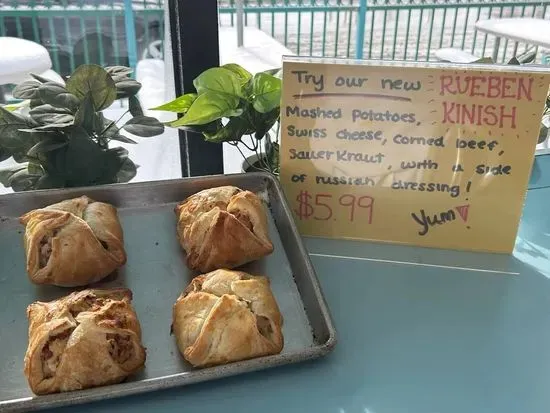 Try our new RUEBEN
KINISH
Mashed Potatoes,
Swiss cheese, corned beef,
Sauerkraut, with a side
of russian dressing!
$5.99 Yum